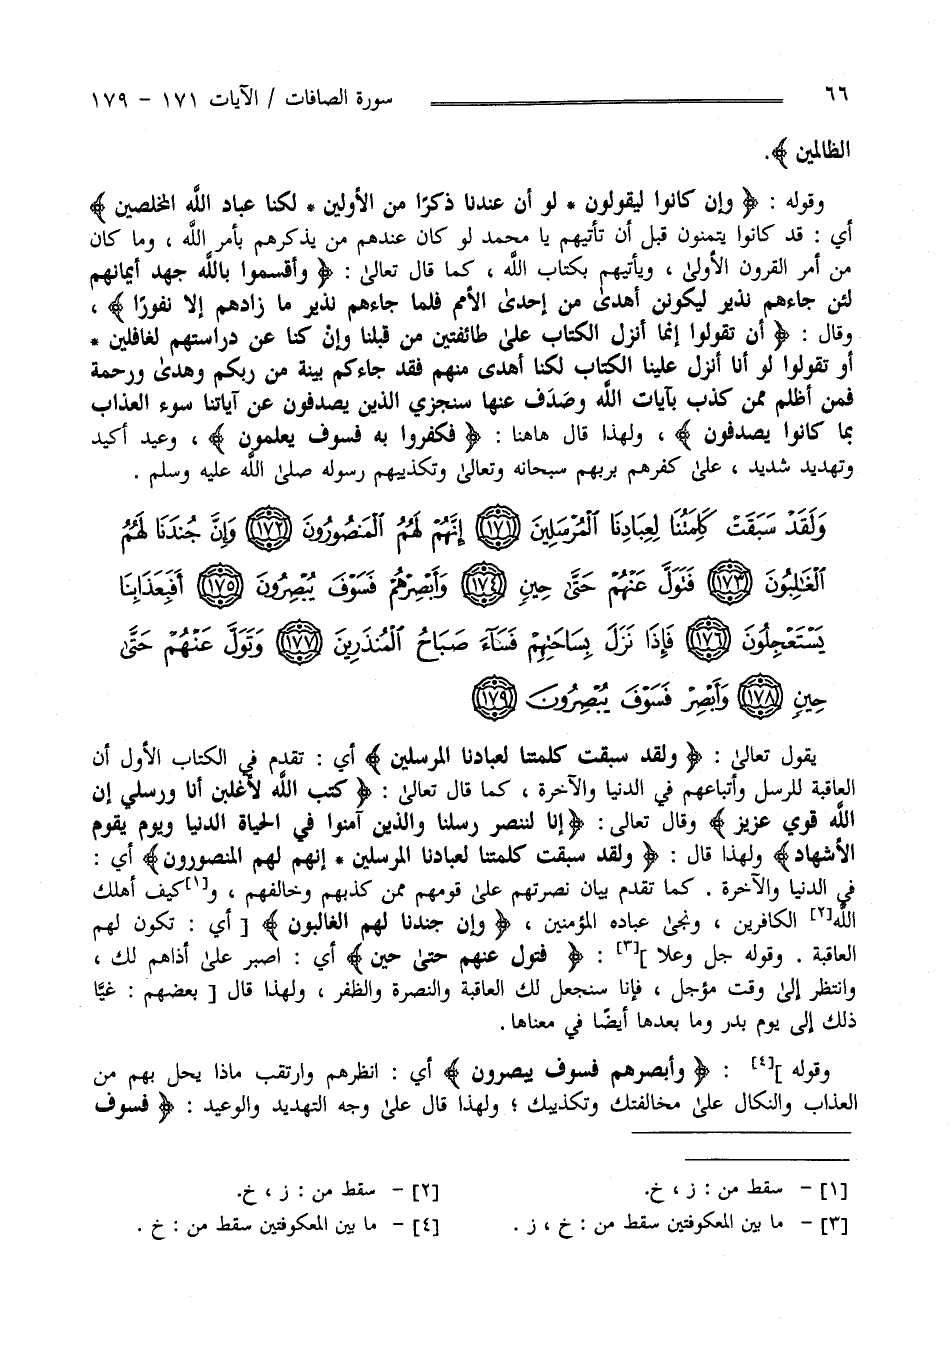 ٦٦ سورة الصافات / الآيات ١٧١ - ١٧٩
الظالمين ﴾.
وقوله : ﴿ وإن كانوا ليقولون * لو أن عندنا ذكرًا من الأولين * لكنا عباد اللَّه المخلصين ﴾
أي : قد كانوا يتمنون قبل أن تأتيهم يا محمد لو كان عندهم من يذكرهم بأمر اللَّه ، وما كان
من أمر القرون الأولىٰ ، ويأتيهم بكتاب اللَّه ، كما قال تعالىٰ : ﴿ وأقسموا باللَّه جهد أيمانهم
لئن جاءهم نذير ليكونن أهدىٰ من إحدىٰ الأمم فلما جاءهم نذير ما زادهم إلا نفورًا ﴾ ،
وقال : ﴿ أن تقولوا إنما أنزل الكتاب علىٰ طائفتين من قبلنا وإنْ كنا عن دراستهم لغافلين *
أو تقولوا لو أنا أنزل علينا الكتاب لكنا أهدى منهم فقد جاءكم بينة من ربكم وهدىٰ ورحمة
فمن أظلم ممن كذب بآيات اللَّه وصَدَف عنها سنجزي الذين يصدفون عن آياتنا سوء العذاب
بما كانوا يصدفون ﴾ ، ولهذا قال هاهنا : ﴿ فكفروا به فسوف يعلمون ﴾ ، وعيد أكيد
وتهديد شديد ، علىٰ كفرهم بربهم سبحانه وتعالىٰ وتكذيبهم رسوله صلىٰ اللَّه عليه وسلم .
وَلَقَدْ سَبَقَتْ كَلِمَتُنَا لِعِبَادِنَا الْمُرْسَلِينَ ﴿١٧١﴾ إِنَّهُمْ لَهُمُ الْمَنصُورُونَ ﴿١٧٢﴾ وَإِنَّ جُندَنَا لَهُمُ
الْغَالِبُونَ ﴿١٧٣﴾ فَتَوَلَّ عَنْهُمْ حَتَّىٰ حِينٍ ﴿١٧٤﴾ وَأَبْصِرْهُمْ فَسَوْفَ يُبْصِرُونَ ﴿١٧٥﴾ أَفَبِعَذَابِنَا
يَسْتَعْجِلُونَ ﴿١٧٦﴾ فَإِذَا نَزَلَ بِسَاحَتِهِمْ فَسَآءَ صَبَاحُ الْمُنذَرِينَ ﴿١٧٧﴾ وَتَوَلَّ عَنْهُمْ حَتَّىٰ
حِينٍ ﴿١٧٨﴾ وَأَبْصِرْ فَسَوْفَ يُبْصِرُونَ ﴿١٧٩﴾
يقول تعالىٰ : ﴿ ولقد سبقت كلمتنا لعبادنا المرسلين ﴾ أي : تقدم في الكتاب الأول أن
العاقبة للرسل وأتباعهم في الدنيا والآخرة ، كما قال تعالىٰ : ﴿ كتب اللَّه لأغلبن أنا ورسلي إن
اللَّه قوي عزيز ﴾ وقال تعالى : ﴿إنا لننصر رسلنا والذين آمنوا في الحياة الدنيا ويوم يقوم
الأشهاد﴾ ولهذا قال : ﴿ ولقد سبقت كلمتنا لعبادنا المرسلين * إنهم لهم المنصورون﴾ أي :
في الدنيا والآخرة . كما تقدم بيان نصرتهم علىٰ قومهم ممن كذبهم وخالفهم ، و[١]كيف أهلك
اللَّه[٢] الكافرين ، ونجىٰ عباده المؤمنين ، ﴿ وإن جندنا لهم الغالبون ﴾ [ أي : تكون لهم
العاقبة . وقوله جل وعلا ][٣] : ﴿ فتول عنهم حتىٰ حين ﴾ أي : اصبر علىٰ أذاهم لك ،
وانتظر إلىٰ وقت مؤجل ، فإنا سنجعل لك العاقبة والنصرة والظفر ، ولهذا قال [ بعضهم : غيَّا
ذلك إلى يوم بدر وما بعدها أيضًا في معناها .
وقوله ][٤] : ﴿ وأبصرهم فسوف يبصرون ﴾ أي : انظرهم وارتقب ماذا يحل بهم من
العذاب والنكال علىٰ مخالفتك وتكذيبك ؛ ولهذا قال علىٰ وجه التهديد والوعيد : ﴿ فسوف
[١] - سقط من : ز ، خ. [٢] - سقط من : ز ، خ.
[٣] - ما بين المعكوفتين سقط من : خ ، ز . [٤] - ما بين المعكوفتين سقط من : خ .